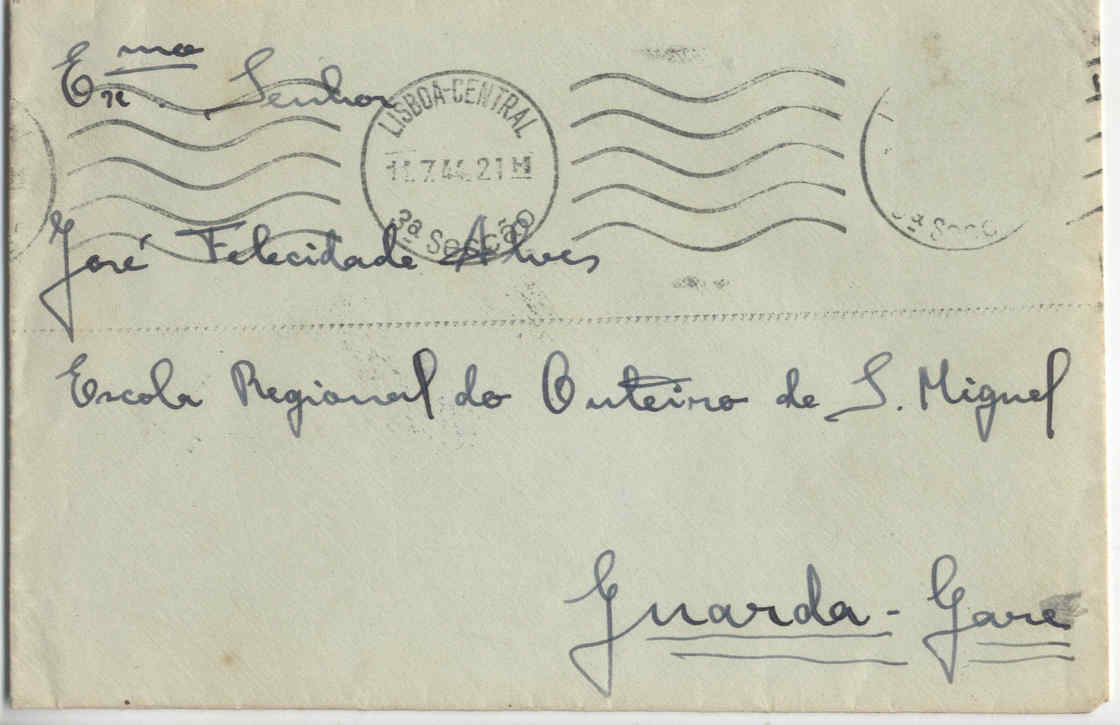 Exmo. Senhor
LISBOA-CENTRAL
11.7.44.21H
3ª Secção
José Felicidade Alves
Escola Regional do Outeiro de S. Miguel
Guarda-Gare